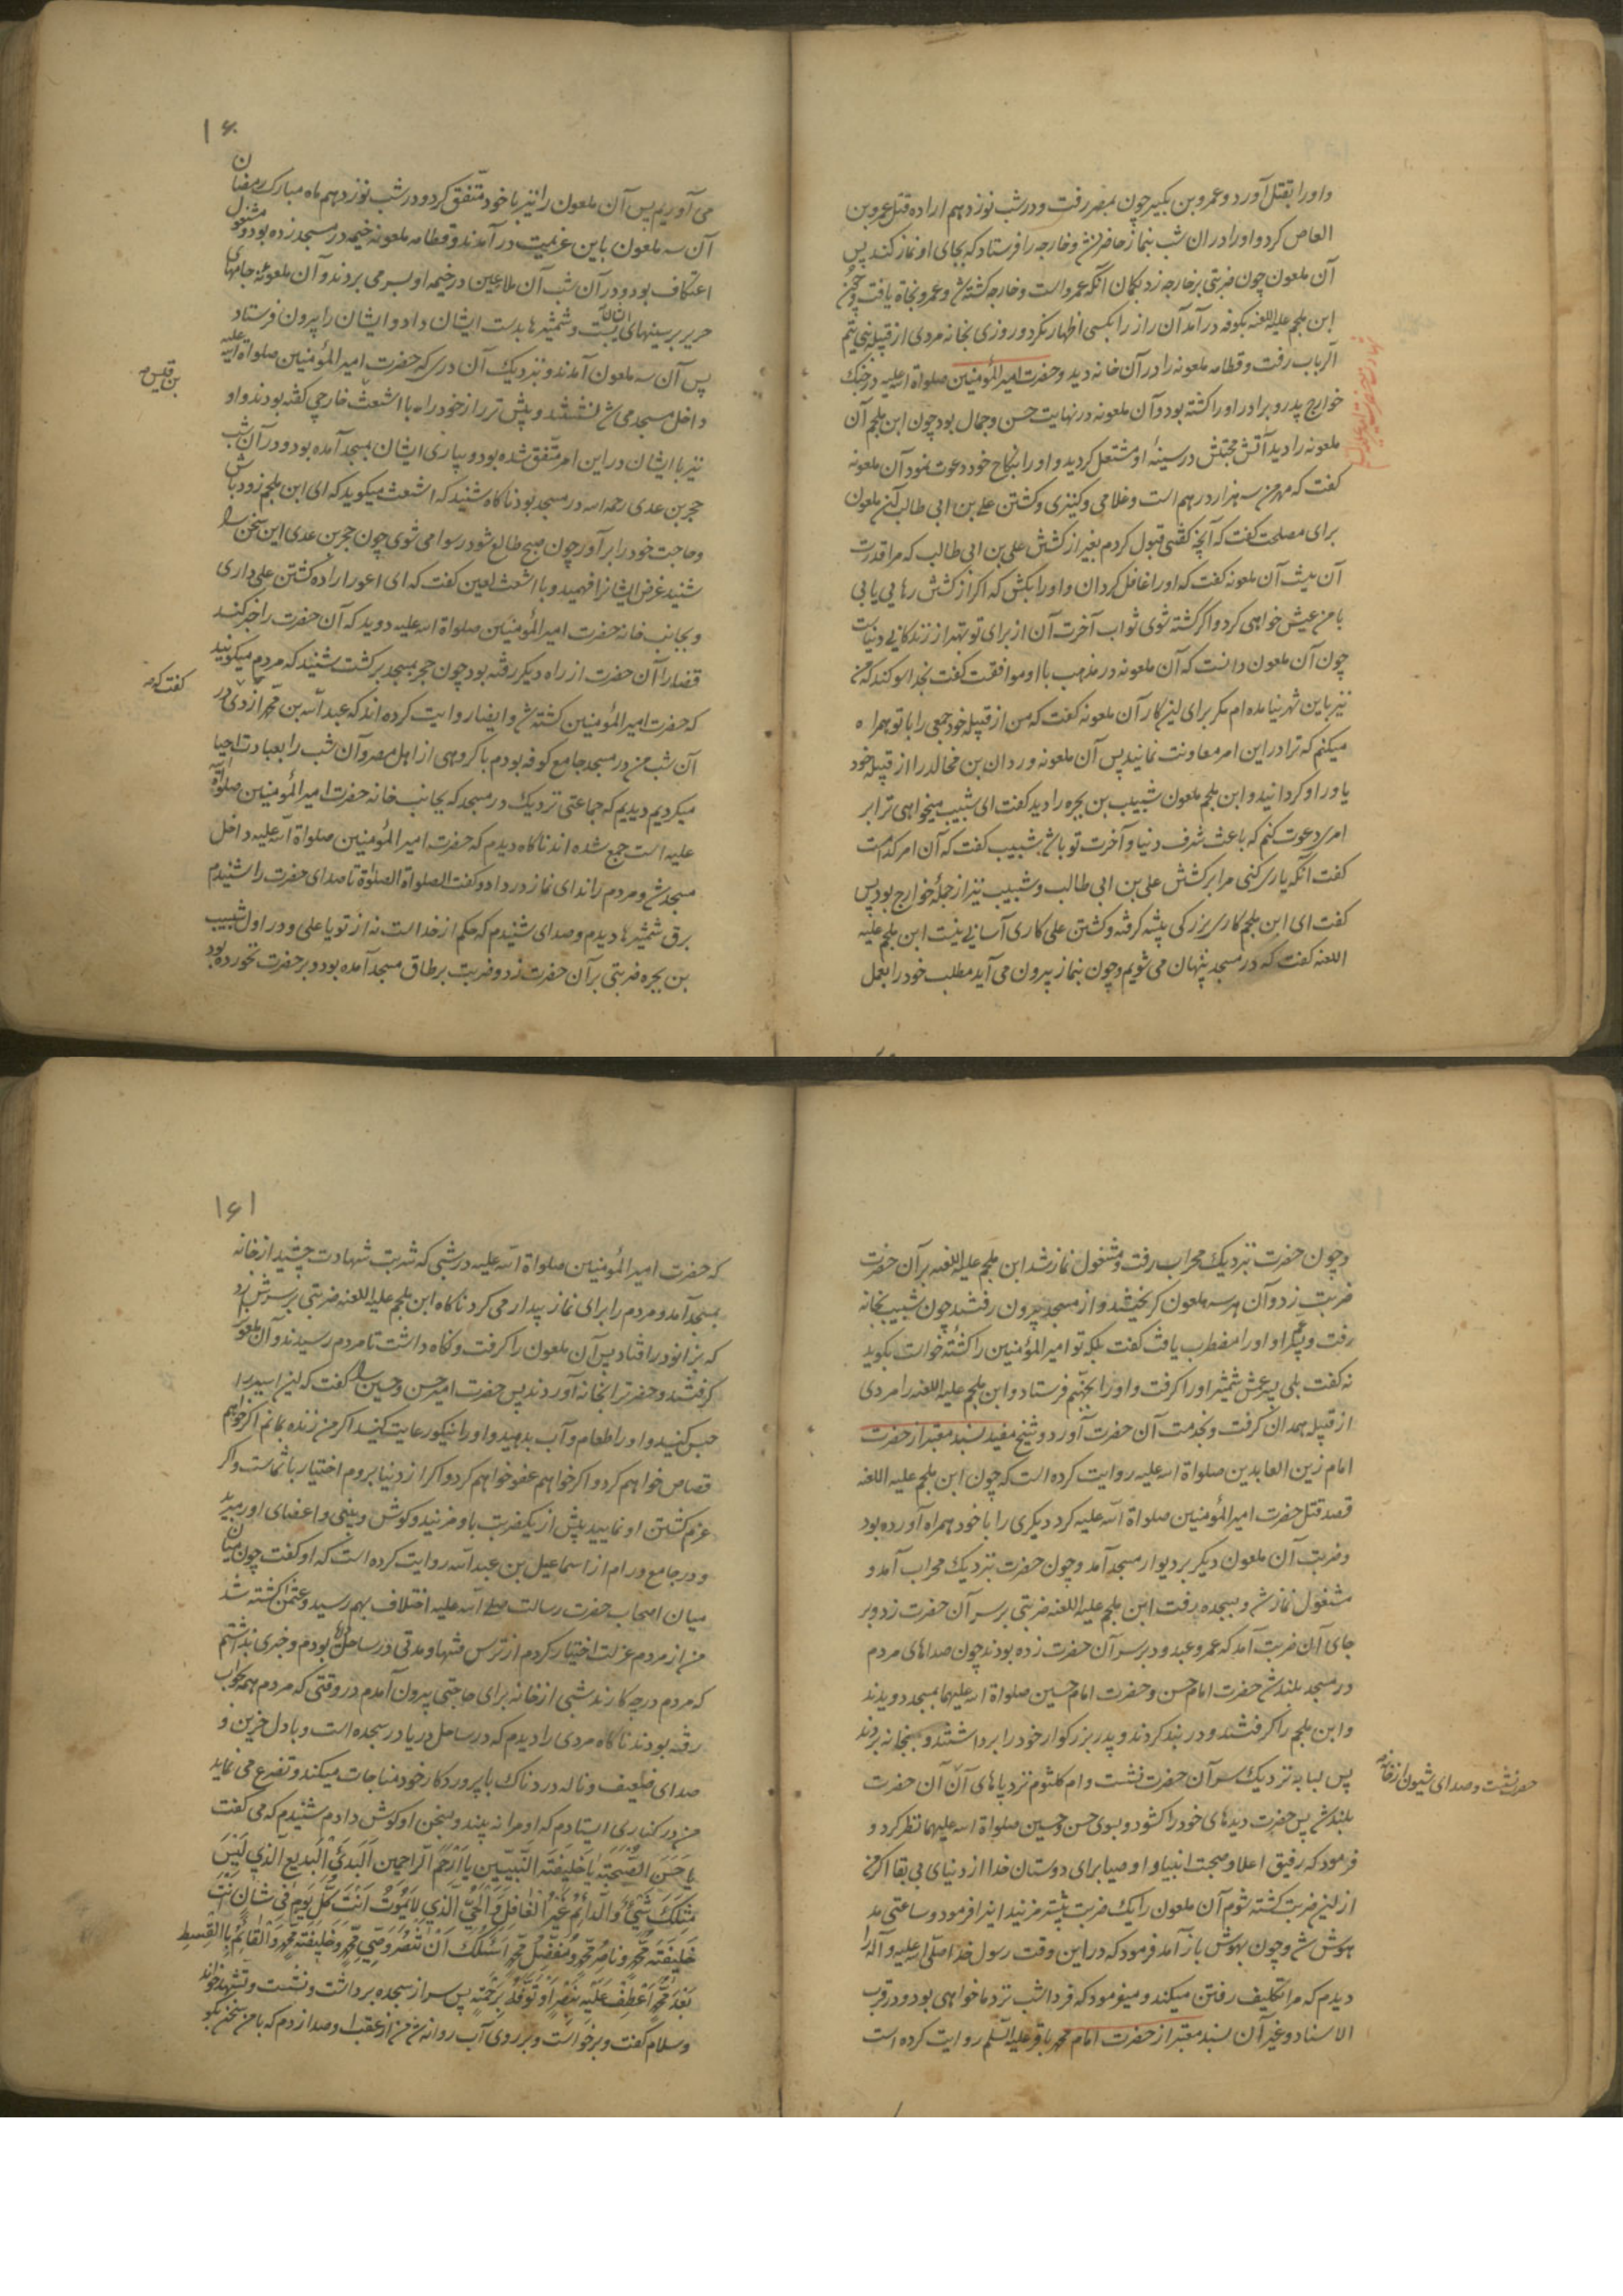 و او را بقتل آورد و عمرو بن بکیر چون بمصر رفت و در شب نوزدهم اراده قتل عمرو بن
العاص کرد و او را در ان شب بنماز حاضر نشد و خارجه را فرستاد که بجای او نماز کند پس
آن ملعون چون ضربتی بر خارجه زد بکمان آنکه عمرو است و خارجه کشته شد و عمرو نجاة یافت و چون
ابن ملجم علیه اللعنه بکوفه در آمد آن راز را بکسی اظهار نکرد و روزی بخانه مردی از قبیله بنی تیم
الرباب رفت و قطامه ملعونه را در آن خانه دید و حضرت امیر المؤمنین صلواة الله علیه در جنک
خوارج پدر و برادر او را کشته بود و آن ملعونه در نهایت حسن و جمال بود چون ابن ملجم آن
ملعونه را دید آتش محبتش در سینهٔ او مشتعل کردید و او را بنکاح خود دعوت نمود آن ملعونه
کفت که مهر من سه هزار درهم است و غلامی و کنیزی و کشتن علی بن ابی طالب آن ملعون
برای مصلحت کفت که آنچه کفتی قبول کردم بغیر از کشتن علی بن ابی طالب که مرا قدرت
آن نیست آن ملعونه کفت که او را غافل کردان و او را بکش که اکر از کشتن رهایی یابی
با من عیش خواهی کرد و اکر کشته شوی ثواب آخرت آن از برای تو بهتر از زندکانی دنیاست
چون آن ملعون دانست که آن ملعونه در مذهب با او موافقت کفت بخدا سوکند که من
نیز باین شهر نیامده ام مکر برای این کار آن ملعونه کفت که من از قبیله خود جمعی را با تو همراه
میکنم که ترا در این امر معاونت نمایند پس آن ملعونه وردان بن مخالد را از قبیله خود
یاور او کردانید و ابن ملجم ملعون شبیب بن بجره را دید کفت ای شبیب میخواهی ترا بر
امری دعوت کنم که باعث شرف دنیا و آخرت تو باشد شبیب کفت که آن امر کدامست
کفت آنکه یاری کنی مرا بر کشتن علی بن ابی طالب و شبیب نیز از جملهٔ خوارج بود پس
کفت ای ابن ملجم کاری بزرکی پیشه کرفته و کشتن علی کاری آسانی نیست ابن ملجم علیه
اللعنه کفت که در مسجد پنهان می شویم و چون بنماز بیرون می آید مطلب خود را بعمل
۱۶۰
می آوریم پس آن ملعون را نیز با خود متّفق کرد و در شب نوزدهم ماه مبارک رمضان
آن سه ملعون باین عزیمت در آمدند و قطامه ملعونه خیمه در مسجد زده بود و مشغول
اعتکاف بود و در آن شب آن ملاعین در خیمه او بسر می بردند و آن ملعونه جامهای
حریر بر سینهای ایشان بست و شمشیرها بدست ایشان داد و ایشان را بیرون فرستاد
پس آن سه ملعون آمدند و نزدیک آن دری که حضرت امیر المؤمنین صلواة الله علیه
داخل مسجد می شد نشستند و پیش تر راز خود را با اشعث خارجی کفته بودند و او
بن قیس صح
نیز با ایشان در این امر متّفق شده بود و بیاری ایشان بمسجد آمده بود و در آن شب
حجر بن عدی رحمه الله در مسجد بود ناکاه شنید که اشعث میکوید که ای ابن ملجم زود باش
و حاجت خود را بر آور چون صبح طالع شود رسوا می شوی چون حجر بن عدی این سخن را
شنید غرض ایشانرا فهمید و با اشعث لعین کفت که ای اعور اراده کشتن علی داری
و بجانب خانه حضرت امیر المؤمنین صلواة الله علیه دوید که آن حضرت را خبر کند
قضا را آن حضرت از راه دیکر رفته بود چون حجر بمسجد برکشت شنید که مردم میکویند
که حضرت امیر المؤمنین کشته شد و ایضا روایت کرده اند که عبد الله بن محمد ازدی در
کفت که صح
آن شب من در مسجد جامع کوفه بودم با کروهی از اهل مصر و آن شب را بعبادت احیا
میکردیم دیدیم که جماعتی نزدیک در مسجد که بجانب خانه حضرت امیر المؤمنین صلواة الله
علیه است جمع شده اند ناکاه دیدم که حضرت امیر المؤمنین صلواة الله علیه داخل
مسجد شد و مردم را ندای نماز در داد و کفت الصلواة الصلوٰة تا صدای حضرت را شنیدم
برق شمشیرها دیدم و صدای شنیدم که حکم از خدا است نه از تو یا علی و در اول شبیب
بن بجره ضربتی بر آن حضرت زد و ضربت بر طاق مسجد آمده بود و بر حضرت نخورده بود
و چون حضرت بنزدیک محراب رفت و مشغول نماز شد ابن ملجم علیه اللعنه بر آن حضرت
ضربت زد و آن هر سه ملعون کریختند و از مسجد بیرون رفتند چون شبیب بخانه
رفت و پسر عم او او را مضطرب یافت کفت بلکه تو امیر المؤمنین را کشتهٔ خواست بکوید
نه کفت بلی پسر عمش شمشیر او را کرفت و او را بجهنّم فرستاد و ابن ملجم علیه اللعنه را مردی
از قبیل همدان کرفت و بخدمت آن حضرت آورد و شیخ مفید بسند معتبر از حضرت
امام زین العابدین صلواة الله علیه روایت کرده است که چون ابن ملجم علیه اللعنه
قصد قتل حضرت امیر المؤمنین صلواة الله علیه کرد دیکری را با خود همراه آورده بود
و ضربت آن ملعون دیکر بر دیوار مسجد آمد و چون حضرت بنزدیک محراب آمد و
مشغول نماز شد و بسجده رفت ابن ملجم علیه اللعنه ضربتی بر سر آن حضرت زد و بر
جای آن ضربت آمد که عمرو عبد ود بر سر آن حضرت زده بودند چون صداهای مردم
در مسجد بلند شد حضرت امام حسن و حضرت امام حسین صلواة الله علیهما بمسجد دویدند
و ابن ملجم را کرفتند و در بند کردند و پدر بزرکوار خود را برداشتند و بخانه بردند
پس لبابه نزدیک سر آن حضرت نشست و ام کلثوم نزد پاهای آن حضرت
حضرت نشست و صدای شیون از خانه
بلند شد پس حضرت دیدهای خود را کشود و بسوی حسن و حسین صلواة الله علیهما نظر کرد و
فرمود که رفیق اعلا و صحبت انبیا و اوصیا برای دوستان خدا از دنیای بی بقا اکر من
از این ضربت کشته شوم آن ملعون را یک ضربت بیشتر مزنید اینرا فرمود و ساعتی مد
هوش شد و چون بهوش باز آمد فرمود که در این وقت رسول خدا صلّی الله علیه و آله را
دیدم که مرا تکلیف رفتن میکند و میفرمود که فردا شب نزد ما خواهی بود و در قرب
الاسناد و غیر آن بسند معتبر از حضرت امام محمد باقر علیه السلم روایت کرده است
۱۶۱
که حضرت امیر المؤمنین صلواة الله علیه در شبی که شربت شهادت چشید از خانه
بمسجد آمد و مردم را برای نماز بیدار می کرد ناکاه ابن ملجم علیه اللعنه ضربتی بر سرش زد
که بزانو در افتاد پس آن ملعون را کرفت و نکاه داشت تا مردم رسیدند و آن ملعون
کرفتند و حضرترا بخانه آوردند پس حضرت امیر حسن و حسین را کفت که این اسیر را
حبس کنید و او را طعام و آب بدهید و او را نیکو رعایت کنید اکر من زنده بمانم اکر خواهم
قصاص خواهم کرد و اکر خواهم عفو خواهم کرد و اکر از دنیا بروم اختیار با شماست و اکر
عزم کشتن او نمایید پیش از یکضربت باو مزنید و کوش و بینی و اعضای او را مبرید
و در جامع ورام از اسماعیل بن عبد الله روایت کرده است که او کفت چون
میان اصحاب حضرت رسالت صلی الله علیه اختلاف بهم رسید و عثمن کشته شد
من از مردم عزلت اختیار کردم از ترس فتنها و مدتی در ساحل دریا بودم و خبری نداشتم
که مردم در چه کارند شبی از خانه برای حاجتی بیرون آمدم در وقتی که مردم همه بخواب
رفته بودند ناکاه مردی را دیدم که در ساحل دریا در سجده است و با دل حزین و
صدای ضعیف و ناله دردناک با پروردکار خود مناجات میکند و تضرع می نماید
من در کناری ایستادم که او مرا نه بیند و بسخن او کوش دادم شنیدم که می کفت
یا حَسَنَ الصُّحبَةِ یا خَلیفَةَ النَّبِیّینَ یا اَرْحَمَ الرّاحِمینَ اَلْبَدیٓءُ الْبَدیعِ الَّذی لَیْسَ
مِثْلَکَ شَیْءٌ وَ الدّائِمُ غَیْرُ الْغافِلِ وَ الْحَیُّ الَّذی لا یَمُوتُ اَنْتَ کُلَّ یَوْمٍ فی شَاْنٍ اَنْتَ
خَلیفَةُ مُحَمَّدٍ وَ ناصِرُ مُحَمَّدٍ وَ مُفَضِّلُ مُحَمَّدٍ اَسْئَلُکَ اَنْ تَنْصُرَ وَصِیَّ مُحَمَّدٍ وَ خَلیفَةَ مُحَمَّدٍ وَ الْقائِمُ بِالْقِسْطِ
بَعْدَ مُحَمَّدٍ اَعْطِفْ عَلَیْهِ بِنَصْرٍ اَوْ تَوَفَّهُ بِرَحْمَةٍ پس سر از سجده برداشت و نشست و تشهد خواند
و سلام کفت و برخواست و بر روی آب روانه شد من از عقب او صدا زدم که با من سخن بکو